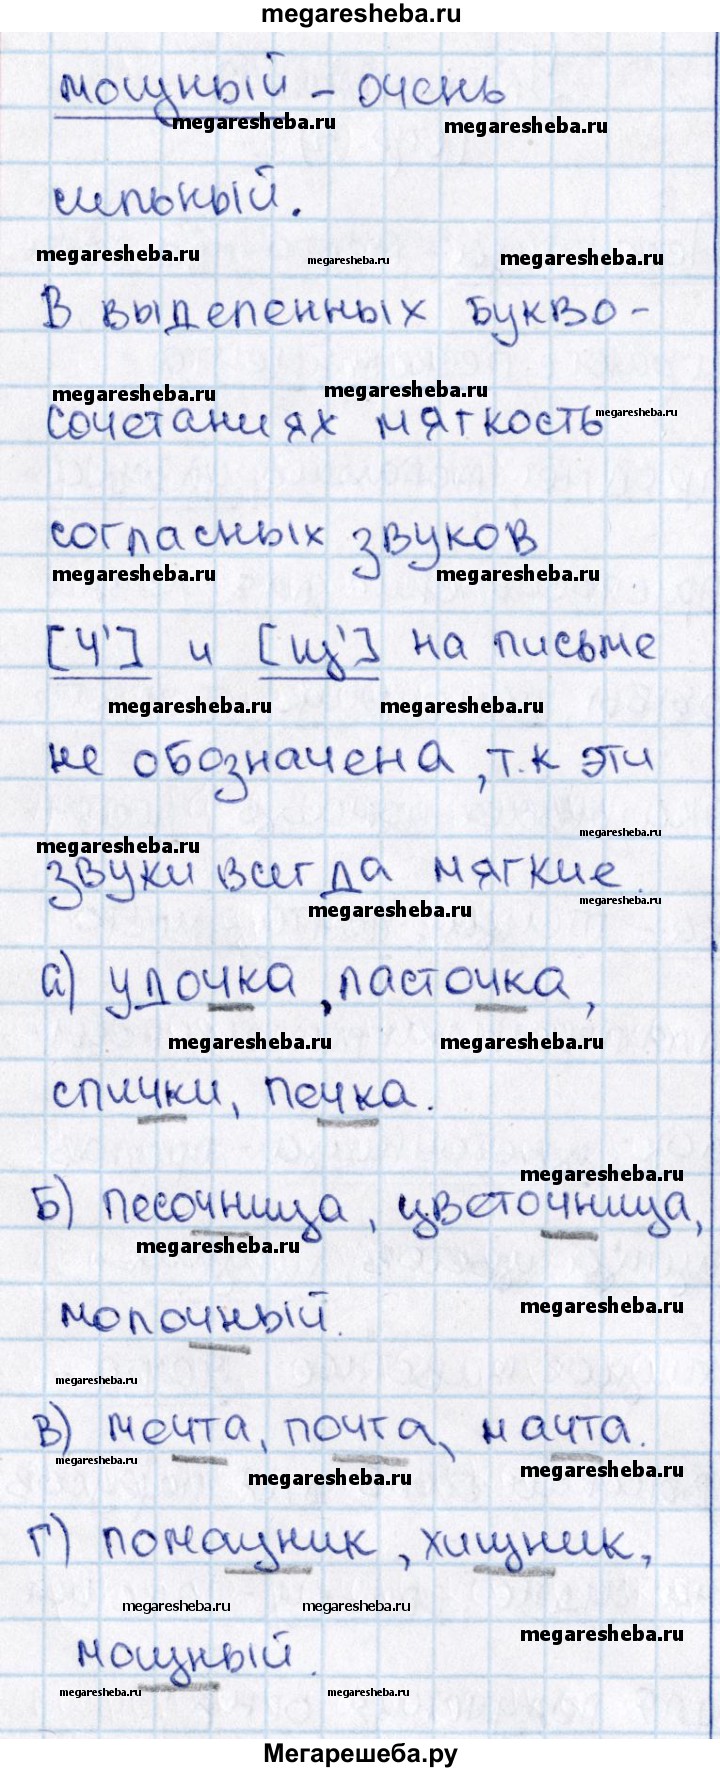 megaresheba.ru
мощный - очень
megaresheba.ru megaresheba.ru
сильный.
megaresheba.ru megaresheba.ru megaresheba.ru
В выделенных букво-
megaresheba.ru megaresheba.ru megaresheba.ru
сочетаниях мягкость
согласных звуков
megaresheba.ru megaresheba.ru
[ч'] и [щ'] на письме
megaresheba.ru megaresheba.ru
не обозначена, т.к эти
megaresheba.ru megaresheba.ru
звуки всегда мягкие.
megaresheba.ru megaresheba.ru
а) удочка, ласточка,
megaresheba.ru megaresheba.ru
спички, печка.
megaresheba.ru
б) песочница, цветочница,
megaresheba.ru
молочный.
megaresheba.ru
megaresheba.ru
в) мечта, почта, мачта.
megaresheba.ru megaresheba.ru megaresheba.ru
г) помощник, хищник,
megaresheba.ru megaresheba.ru megaresheba.ru
мощный.
megaresheba.ru megaresheba.ru
Мегарешеба.ру